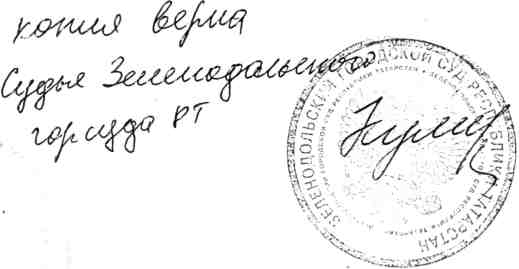 копия верна
Судья Зеленодольского
горсуда РТ
ЗЕЛЕНОДОЛЬСКИЙ ГОРОДСКОЙ СУД РЕСПУБЛИКИ ТАТАРСТАН